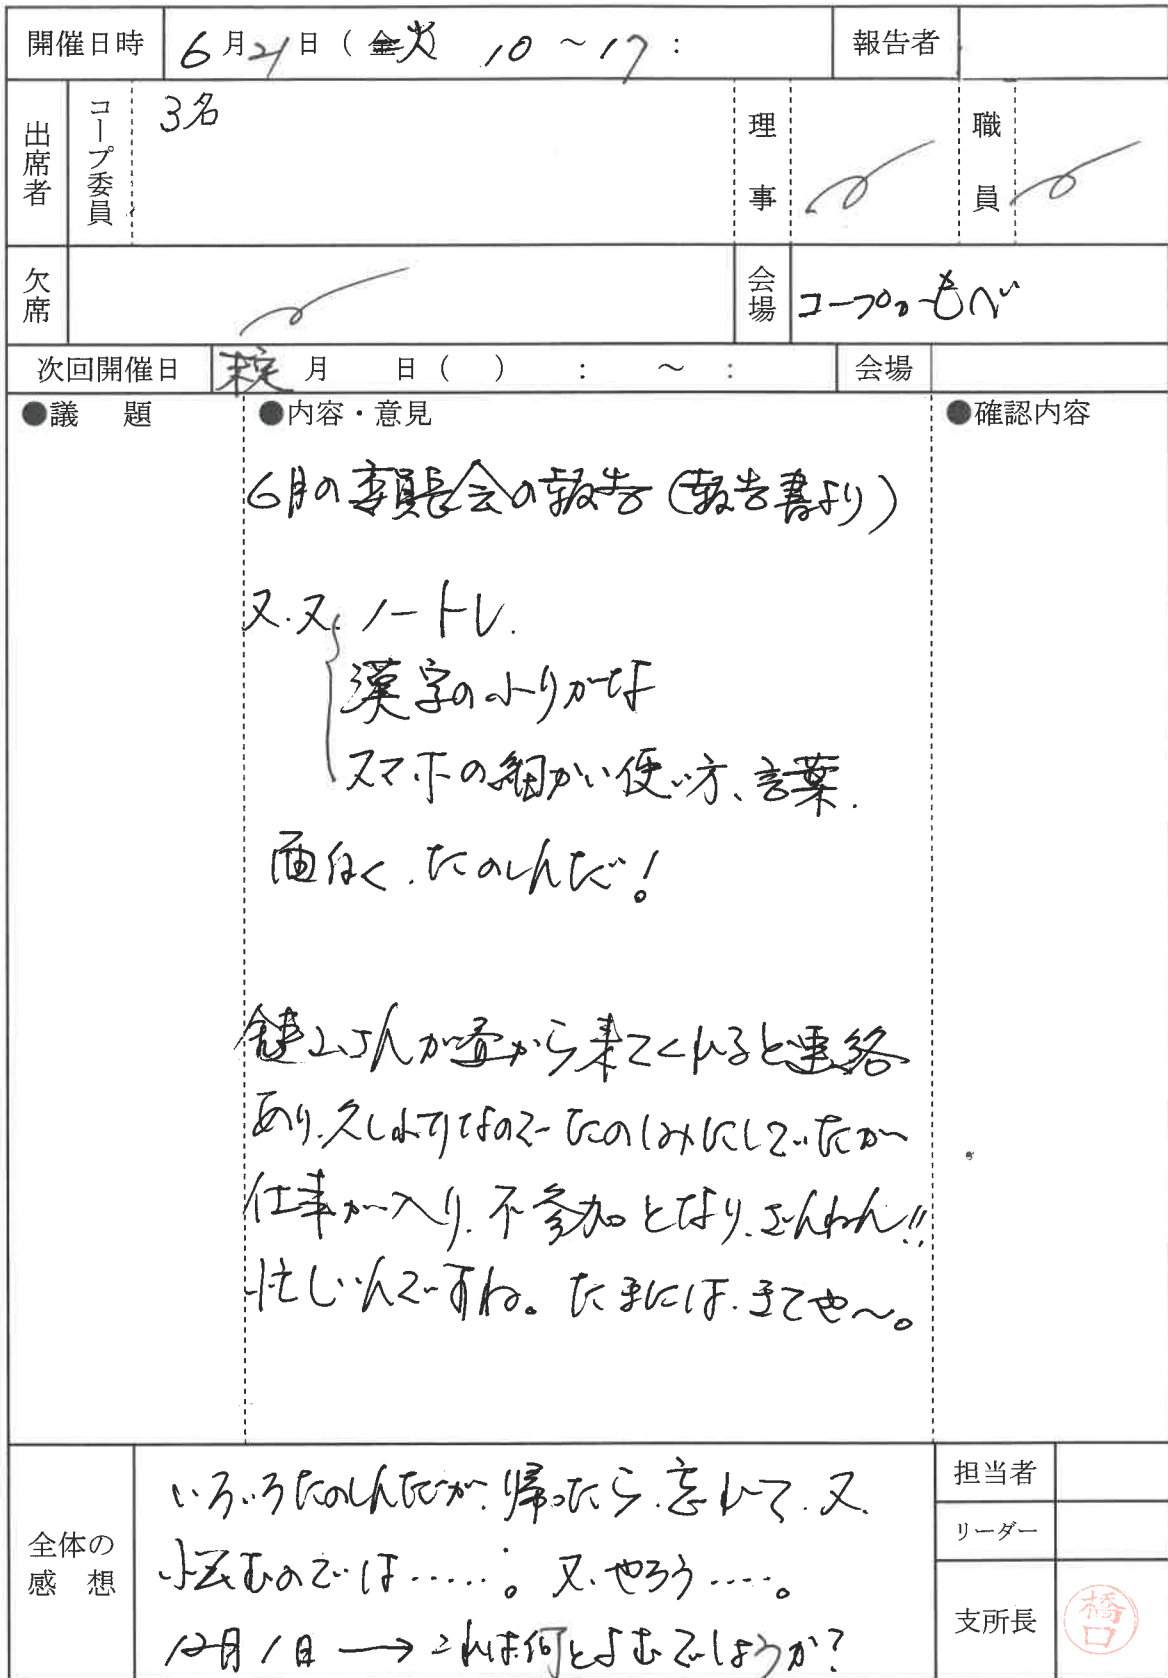 開催日時 6月21日(金火 10 ～17 : 報告者
出席者 コープ委員 3名 理事 職員
欠席 会場 コープのもべ
次回開催日 未定 月 日( ) : ～ : 会場
●議題 ●内容・意見 ●確認内容
6月の委員長会の報告(報告書より)
又.又 ノートレ.
漢字のふりがな
スマホの細かい使い方、言葉.
面白く.たのしんだ!
さんが昼から来てくれると連絡
あり.久しぶりなので たのしみにしていたが
仕事が入り.不参加となり.ざんねん!!
忙しいんですね。たまには.きてや～。
全体の感想
いろいろたのしんだが.帰ったら.忘れて.又.
むのでは.....。又.やろう....。
12月1日 → これは何とよむでしょうか?
担当者
リーダー
支所長 橋口